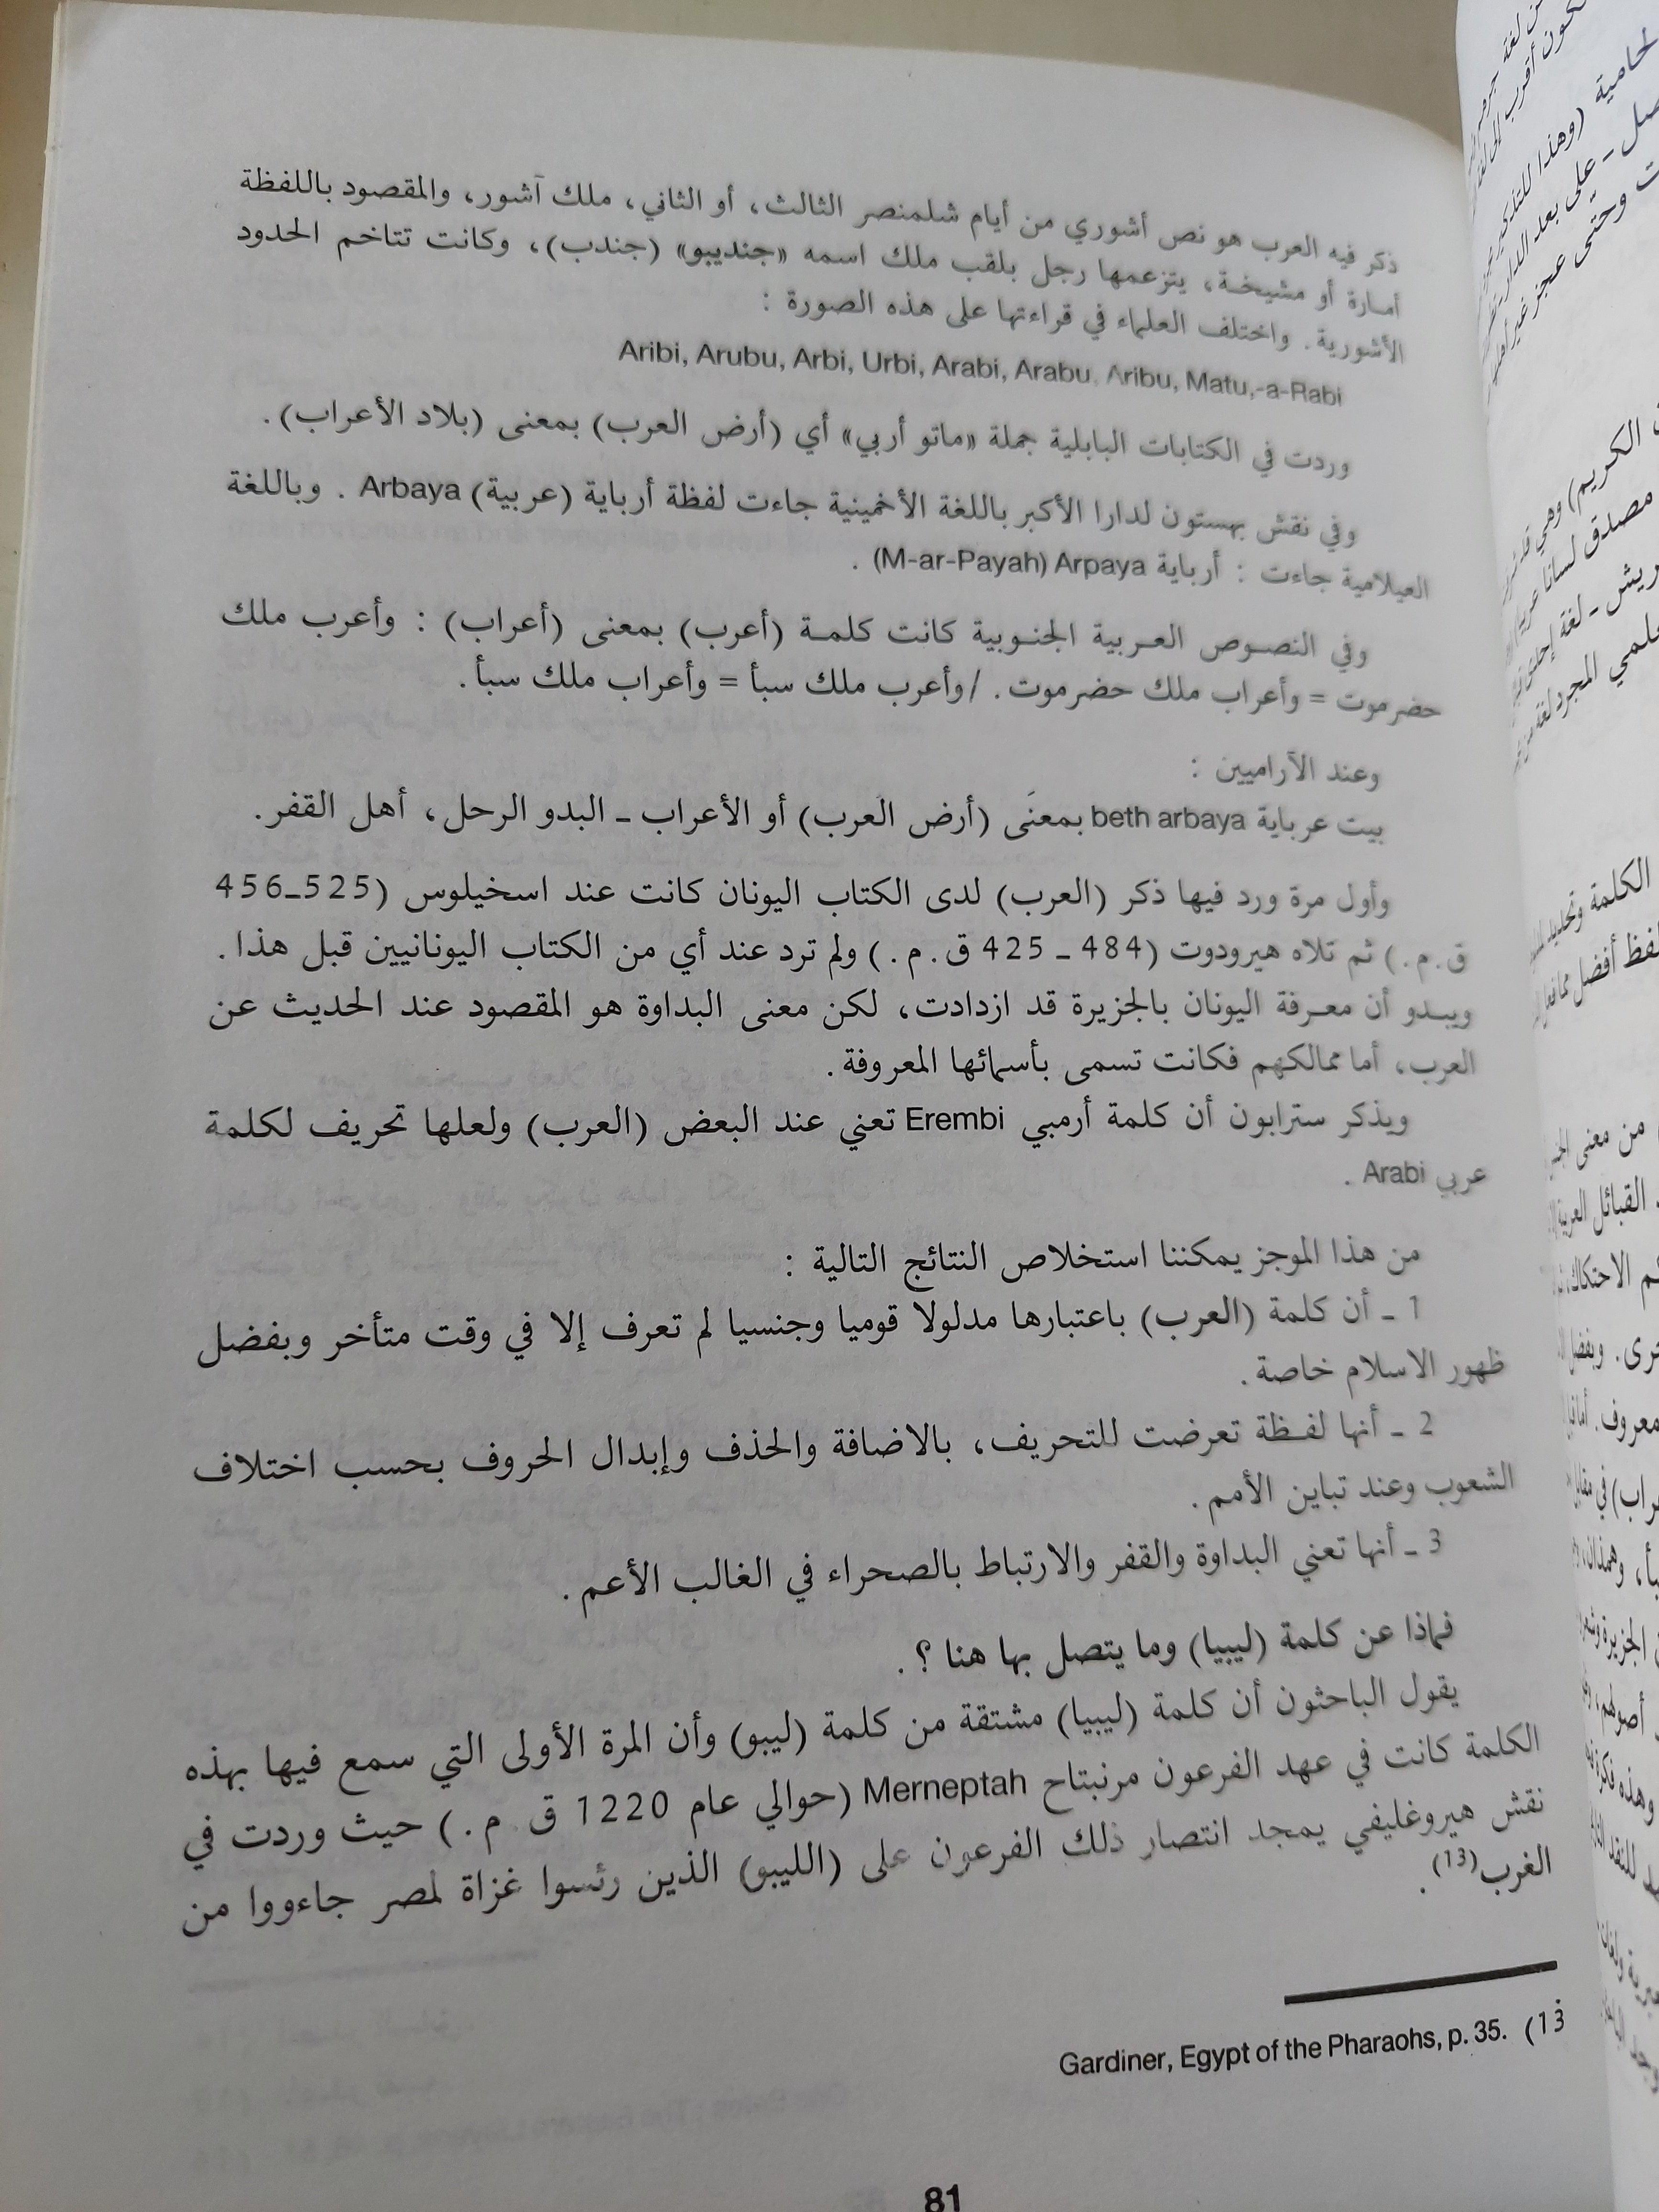 ذكر فيه العرب هو نص أشوري من أيام شلمنصر الثالث، أو الثاني، ملك آشور، والمقصود باللفظة
أمارة أو مشيخة، يتزعمها رجل بلقب ملك اسمه «جنديبو» (جندب)، وكانت تتاخم الحدود
الأشورية. واختلف العلماء في قراءتها على هذه الصورة :
Aribi, Arubu, Arbi, Urbi, Arabi, Arabu, Aribu, Matu,-a-Rabi
وردت في الكتابات البابلية جملة «ماتو أربي» أي (أرض العرب) بمعنى (بلاد الأعراب).
وفي نقش بهستون لدارا الأكبر باللغة الأخمينية جاءت لفظة أرباية (عربية) Arbaya . وباللغة
العيلامية جاءت : أرباية M-ar-Payah) Arpaya) .
وفي النصوص العربية الجنوبية كانت كلمة (أعرب) بمعنى (أعراب) : وأعرب ملك
حضرموت = وأعراب ملك حضرموت. /وأعرب ملك سبأ = وأعراب ملك سبأ.
وعند الآراميين :
بيت عرباية beth arbaya بمعنَى (أرض العرب) أو الأعراب ـ البدو الرحل، أهل القفر.
وأول مرة ورد فيها ذكر (العرب) لدى الكتاب اليونان كانت عند اسخيلوس (525ـ456
ق.م.) ثم تلاه هيرودوت (484 ـ 425 ق.م.) ولم ترد عند أي من الكتاب اليونانيين قبل هذا.
ويبدو أن معرفة اليونان بالجزيرة قد ازدادت، لكن معنى البداوة هو المقصود عند الحديث عن
العرب، أما ممالكهم فكانت تسمى بأسمائها المعروفة.
ويذكر سترابون أن كلمة أرمبي Erembi تعني عند البعض (العرب) ولعلها تحريف لكلمة
عربي Arabi .
من هذا الموجز يمكننا استخلاص النتائج التالية :
1 ـ أن كلمة (العرب) باعتبارها مدلولا قوميا وجنسيا لم تعرف إلا في وقت متأخر وبفضل
ظهور الاسلام خاصة.
2 ـ أنها لفظة تعرضت للتحريف، بالاضافة والحذف وإبدال الحروف بحسب اختلاف
الشعوب وعند تباين الأمم.
3 ـ أنها تعني البداوة والقفر والارتباط بالصحراء في الغالب الأعم.
فماذا عن كلمة (ليبيا) وما يتصل بها هنا ؟ .
يقول الباحثون أن كلمة (ليبيا) مشتقة من كلمة (ليبو) وأن المرة الأولى التي سمع فيها بهذه
الكلمة كانت في عهد الفرعون مرنبتاح Merneptah (حوالي عام 1220 ق. م.) حيث وردت في
نقش هيروغليفي يمجد انتصار ذلك الفرعون على (الليبو) الذين رئسوا غزاة لمصر جاءووا من
الغرب(13).
13) Gardiner, Egypt of the Pharaohs, p. 35.
81